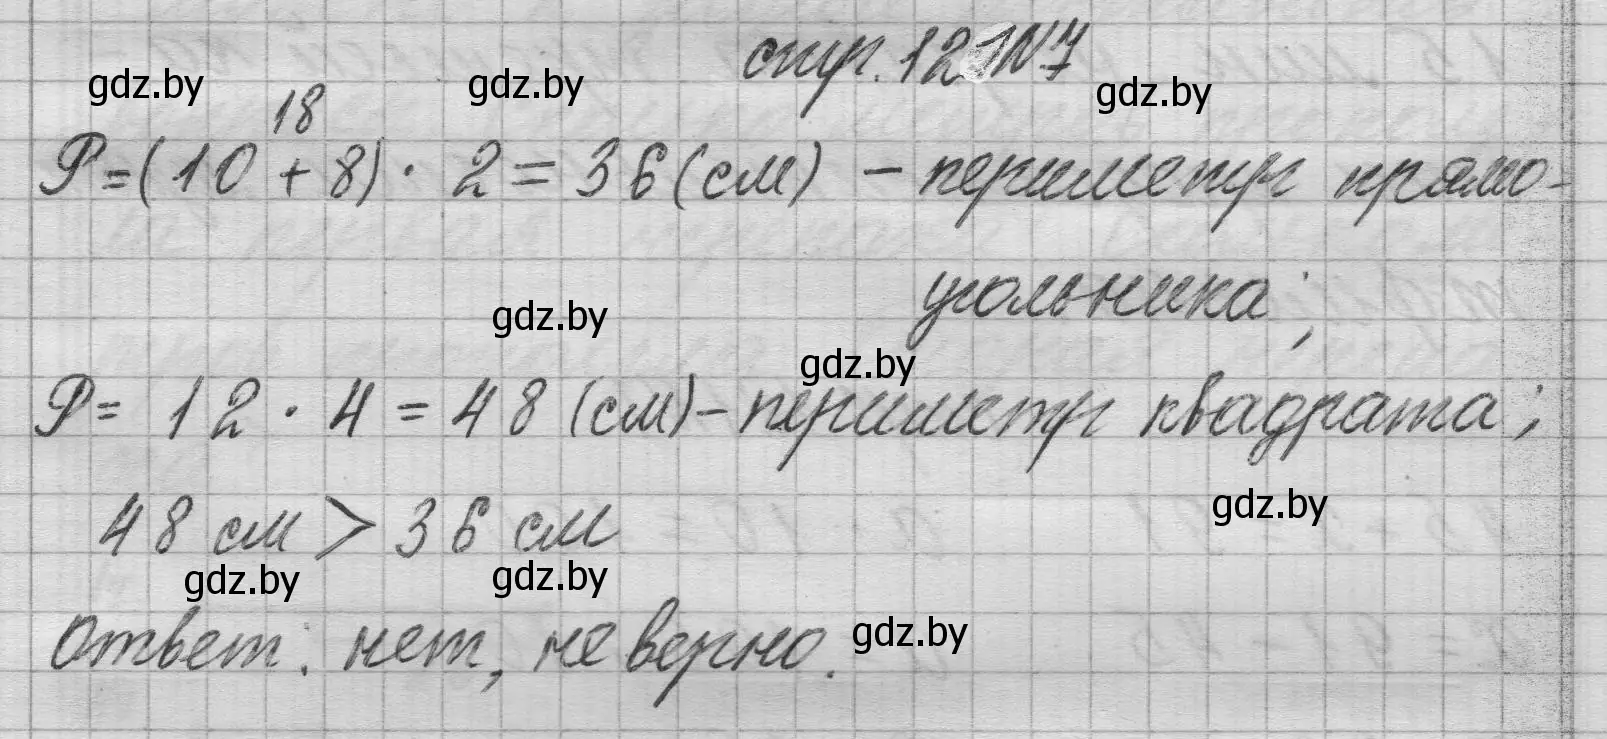 стр. 121 №7
gdz.by gdz.by gdz.by
18
P=(10+8)· 2=36(см) - периметр прямо-
угольника;
gdz.by
gdz.by
P= 12 · 4 = 48 (см)- периметр квадрата;
gdz.by
48 см > 36 см
gdz.by gdz.by
Ответ: нет, не верно.
gdz.by